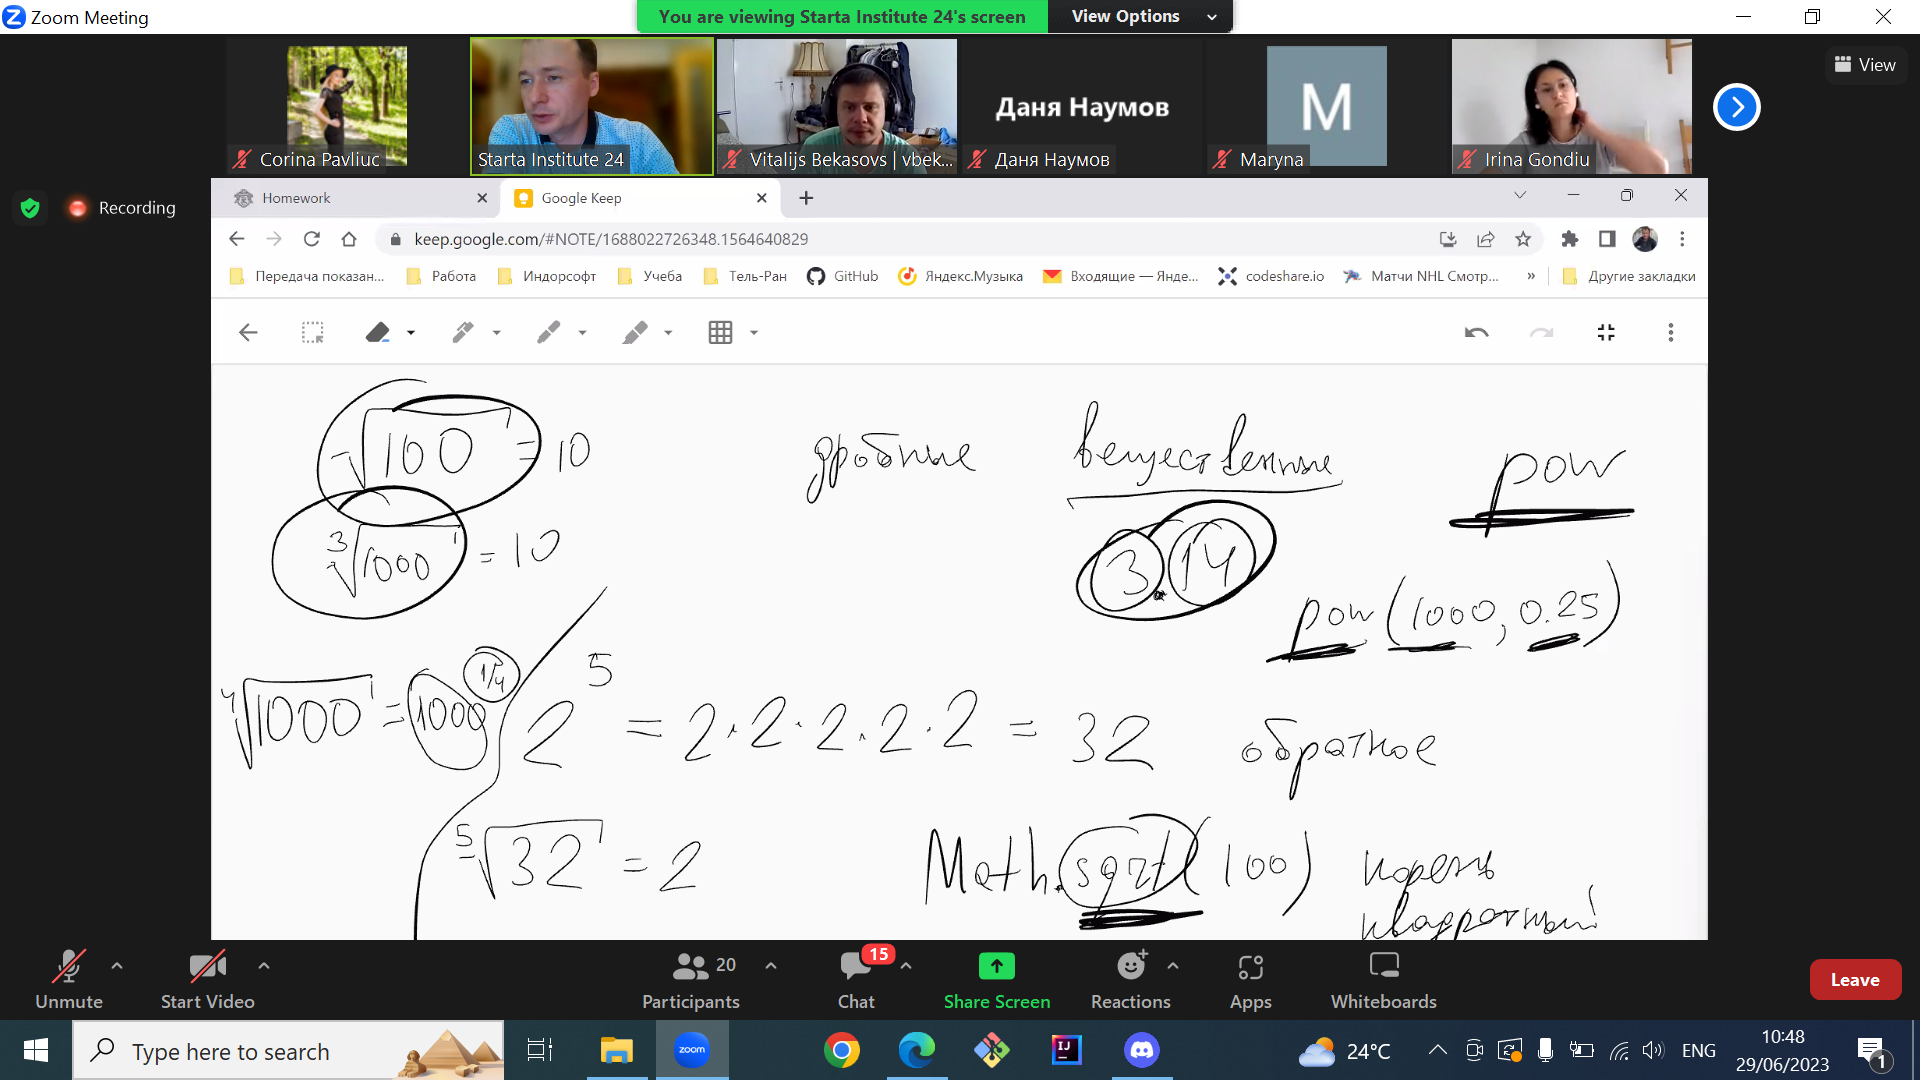 Zoom Meeting
You are viewing Starta Institute 24's screen View Options
Даня Наумов
M
Corina Pavliuc Starta Institute 24 Vitalijs Bekasovs | vbek... Даня Наумов Maryna Irina Gondiu
View
Recording
Homework Google Keep
keep.google.com/#NOTE/1688022726348.1564640829
Передача показан... Работа Индорсофт Учеба Тель-Ран GitHub Яндекс.Музыка Входящие — Янде... codeshare.io Матчи NHL Смотр... » Другие закладки
√100 = 10 дробные вещественные pow
³√1000 = 10 3.14
pow(1000, 0.25)
⁴√1000 = 1000^1/4 2^5 = 2·2·2·2·2 = 32 обратное
⁵√32 = 2 Math.sqrt(100) корень
квадратный
15
20
Unmute Start Video Participants Chat Share Screen Reactions Apps Whiteboards Leave
Type here to search zoom IJ 24°C ENG 10:48
29/06/2023 1